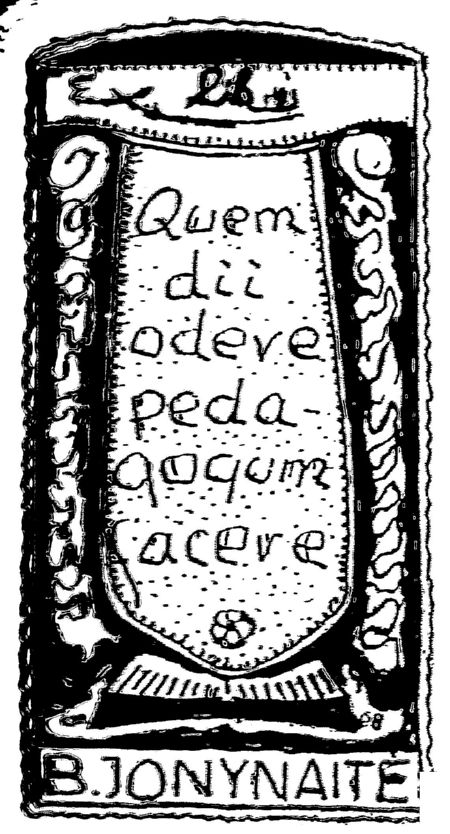 Ex libri
Quem
dii
odere
peda-
gogum
facere
68
B.JONYNAITE